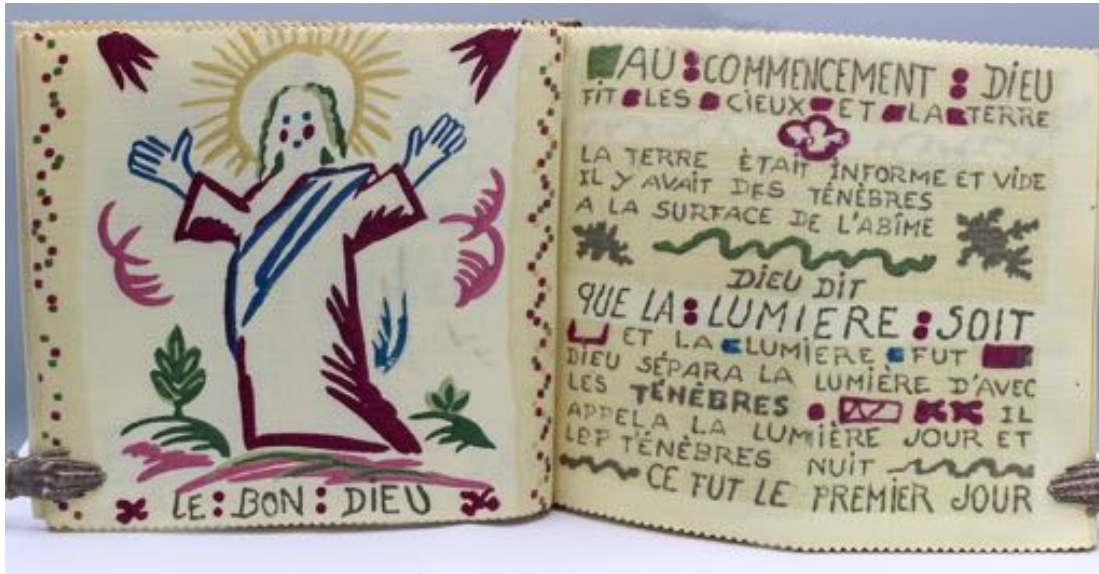 LE : BON : DIEU
AU : COMMENCEMENT : DIEU
FIT LES CIEUX ET LA TERRE
LA TERRE ÈTAIT INFORME ET VIDE
IL Y AVAIT DES TÉNÈBRES
A LA SURFACE DE L'ABÎME
DIEU DIT
QUE LA : LUMIERE : SOIT
ET LA LUMIERE FUT
DIEU SÉPARA LA LUMIÈRE D'AVEC
LES TÉNÈBRES IL
APPELA LA LUMIÈRE JOUR ET
LES TÉNÈBRES NUIT
CE FUT LE PREMIER JOUR